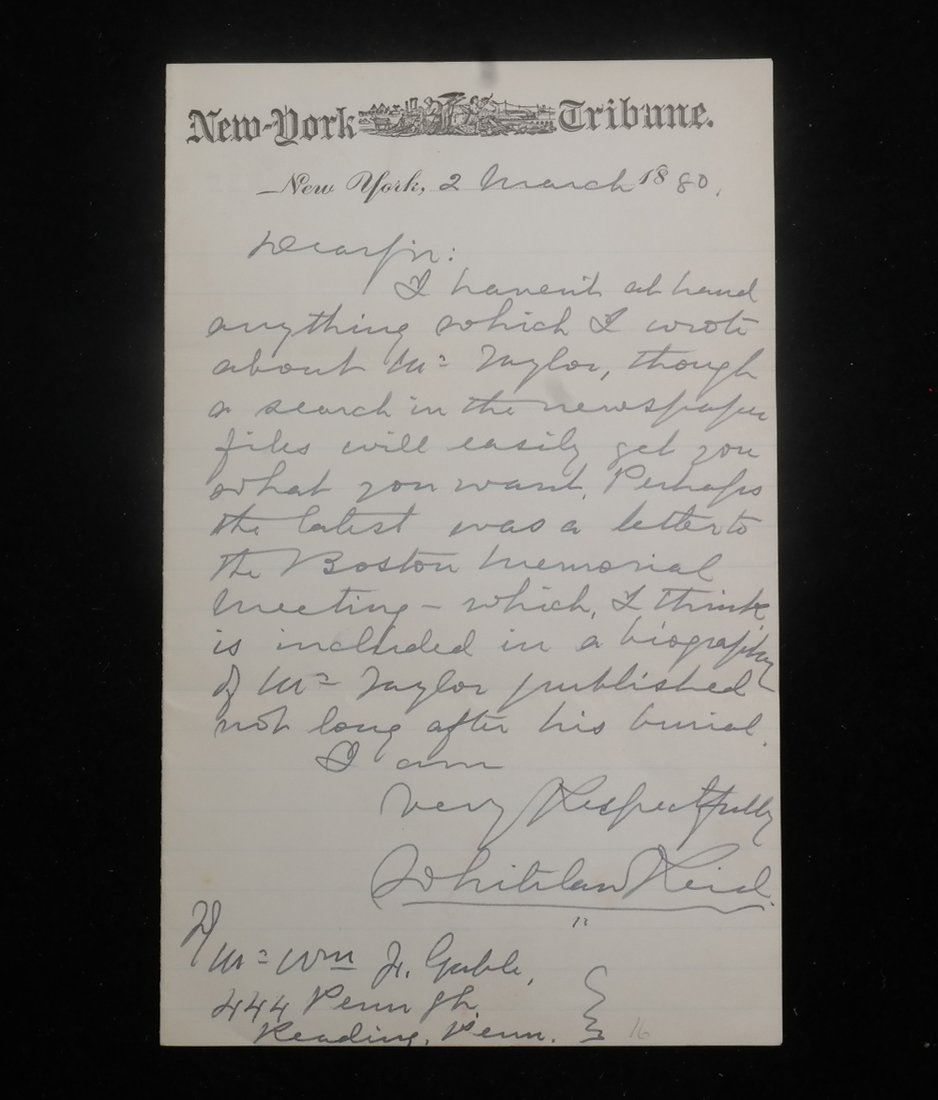 New-York Tribune.
New York, 2 March 1880.
Dear Sir:
I haven't at hand
anything which I wrote
about Mr Taylor, though
a search in the newspaper
files will easily get you
what you want. Perhaps
the latest was a letter to
the Boston Memorial
Meeting – which, I think
is included in a biography
of Mr Taylor published
not long after his burial.
I am
Very Respectfully
Whitelaw Reid
Mr Wm J. Gable,
444 Penn St.
Reading, Penn.
16